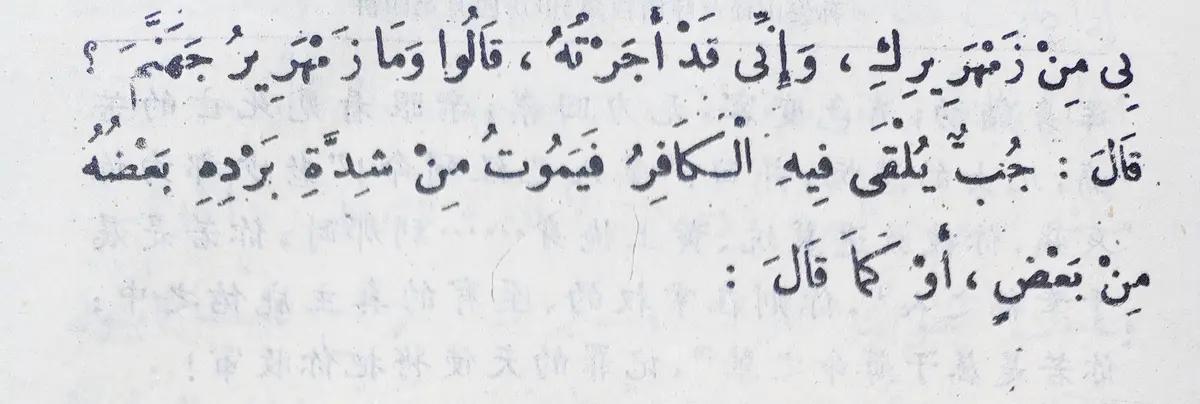 بِي مِنْ زَمْهَرِيرِكِ ، وَإِنِّى قَدْ أَجَرْتُهُ ، قَالُوا وَمَا زَمْهَرِيرُ جَهَنَّمَ ؟
قَالَ : جُبٌّ يُلْقَى فِيهِ الْكَافِرُ فَيَمُوتُ مِنْ شِدَّةِ بَرْدِهِ بَعْضُهُ
مِنْ بَعْضٍ ، أَوْ كَمَا قَالَ :